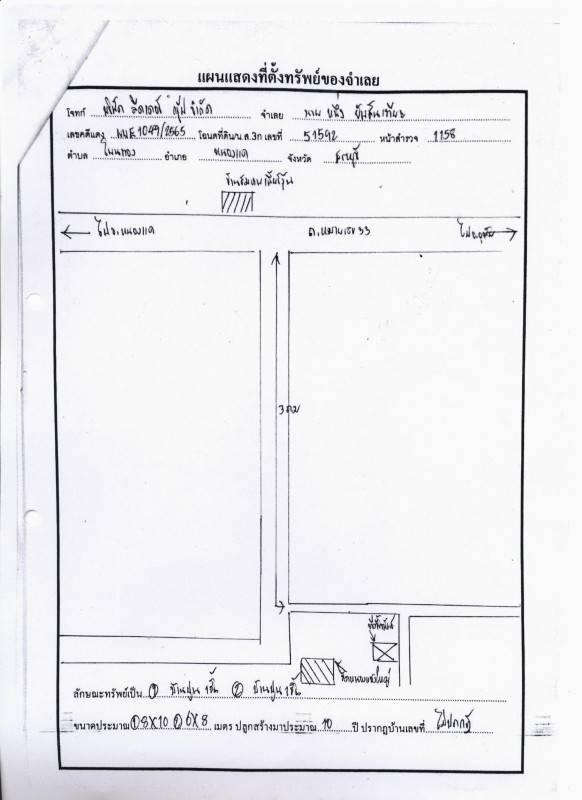 แผนแสดงที่ตั้งทรัพย์ของจำเลย
โจทก์ บริษัท ลีดเดอร์ กรุ๊ป จำกัด จำเลย นาย
เลขคดีแดง ผบE1049/2565 โฉนดที่ดิน/น.ส.3ก เลขที่ 51592 หน้าสำรวจ 1158
ตำบล โนนทอง อำเภอ หนองแค จังหวัด สระบุรี
ไป อ.หนองแค ถ.หมายเลข 33 ไป
3 กม
ที่ตั้งทรัพย์
ลักษณะทรัพย์เป็น ① บ้านปูน 1ชั้น ② บ้านปูน 1ชั้น
ขนาดประมาณ ① 8X10 ② 6X8 เมตร ปลูกสร้างมาประมาณ 10 ปี ปรากฏบ้านเลขที่ ไม่ปรากฏ